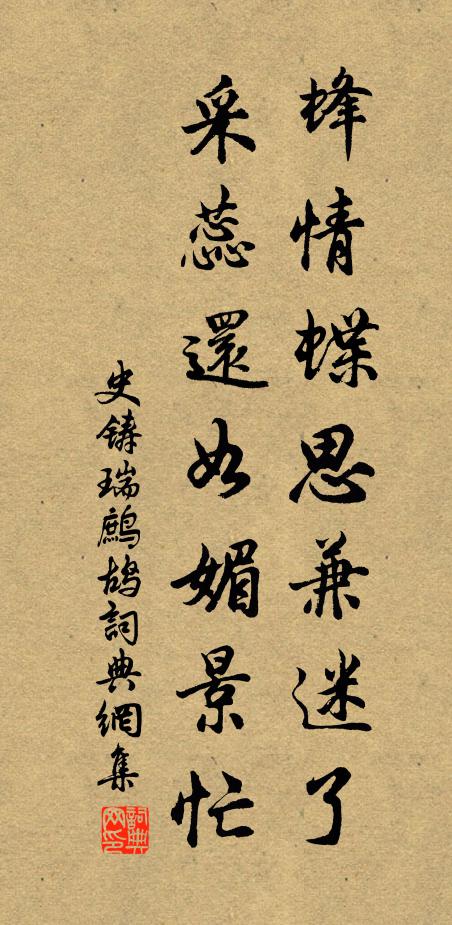 蜂情蝶思兼迷了
采蕊還如媚景忙
史鑄瑞鷓鴣詞典網集
詞典網印